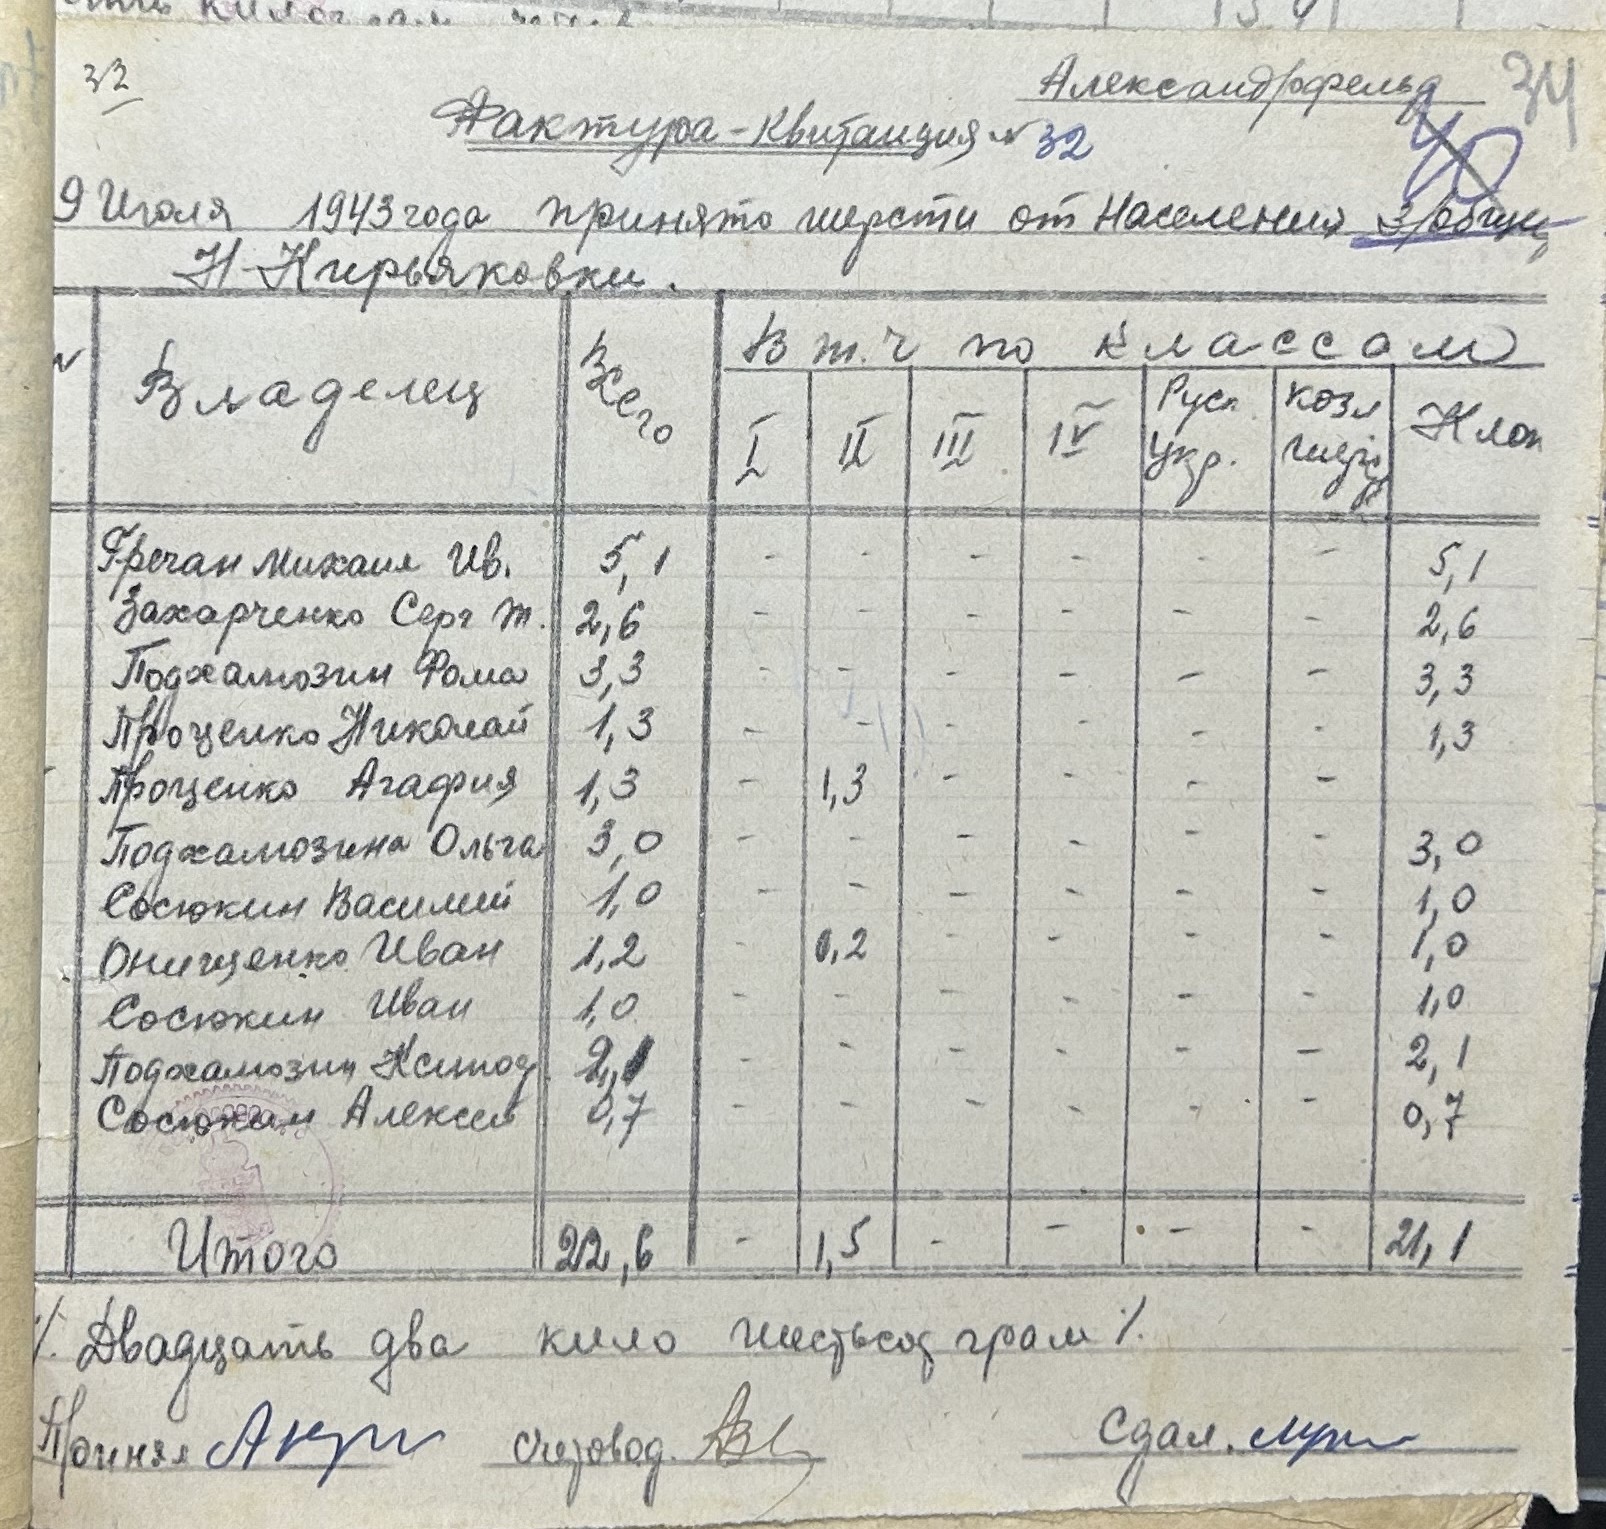 32
Александрфельд 34
Фактура-Квитанция № 32
40
9 Июля 1943 года принято шерсти от Населения 3/общин,
Н-Кирьяковки.
№ Владелец Всего В т.ч по классам
I II III IV Русс. Укр. Козл шерсть Клок
Гречан Михаил Ив. 5,1 - - - - - - 5,1
Захарченко Серг Т. 2,6 - - - - - - 2,6
Подхамозин Фома 3,3 - - - - - - 3,3
Проценко Николай 1,3 - - - - - - 1,3
Проценко Агафия 1,3 - 1,3 - - - -
Подхамозина Ольга 3,0 - - - - - - 3,0
Сосюкин Василий 1,0 - - - - - - 1,0
Онищенко Иван 1,2 - 0,2 - - - - 1,0
Сосюкин Иван 1,0 - - - - - - 1,0
Подхамозин 2,1 - - - - - - 2,1
Алексей 0,7 - - - - - - 0,7
Итого 22,6 - 1,5 - - - - 21,1
/. Двадцать два кило шестьсот грам /.
Принял Счетовод. Сдал.